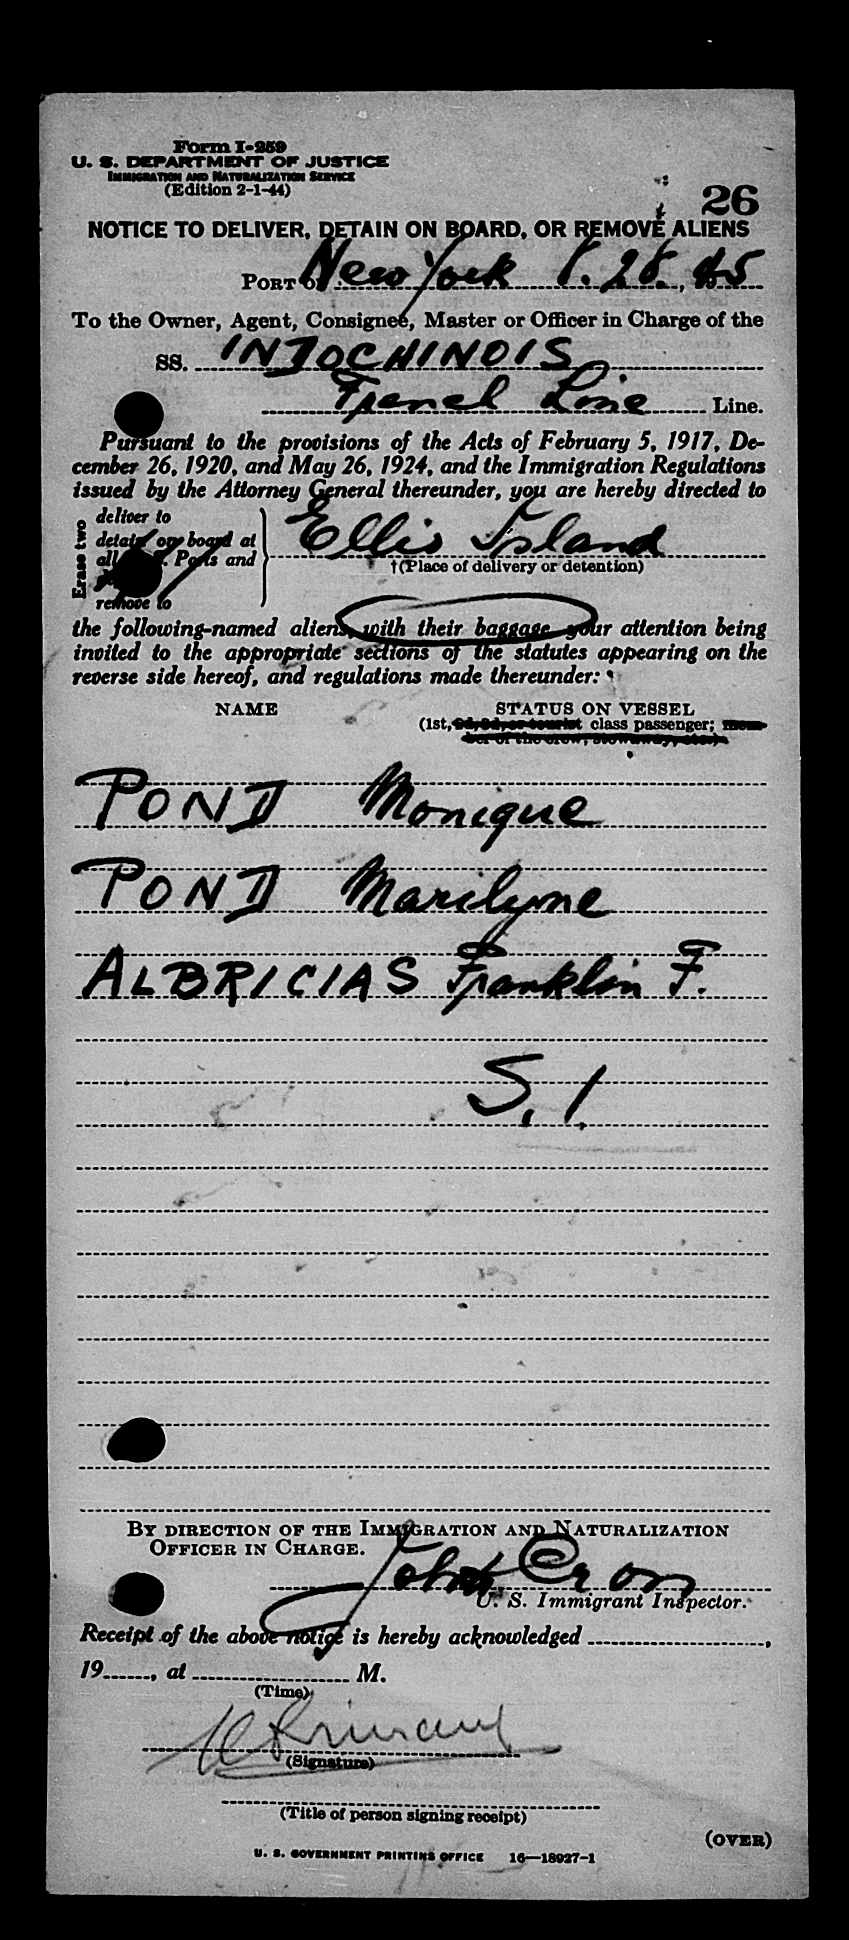 Form I-259
U. S. DEPARTMENT OF JUSTICE
IMMIGRATION AND NATURALIZATION SERVICE
(Edition 2-1-44)
26
NOTICE TO DELIVER, DETAIN ON BOARD, OR REMOVE ALIENS
PORT of New York 8. 28., 45
To the Owner, Agent, Consignee, Master or Officer in Charge of the
SS. INDOCHINOIS
French Line Line.
Pursuant to the provisions of the Acts of February 5, 1917, De-
cember 26, 1920, and May 26, 1924, and the Immigration Regulations
issued by the Attorney General thereunder, you are hereby directed to
Erase two
deliver to
detain on board at
all Ports and
remove to
Ellis Island
†(Place of delivery or detention)
the following-named aliens, with their baggage, your attention being
invited to the appropriate sections of the statutes appearing on the
reverse side hereof, and regulations made thereunder:
NAME STATUS ON VESSEL
(1st, 2d, 3d, or tourist class passenger; mem-
ber of the crew, stowaway, etc.)
POND Monique
POND Marilyne
ALBRICIAS Franklin F.
S. 1.
BY DIRECTION OF THE IMMIGRATION AND NATURALIZATION
OFFICER IN CHARGE.
John Cron
U. S. Immigrant Inspector.
Receipt of the above notice is hereby acknowledged ,
19 , at M.
(Time)
(Signature)
(Title of person signing receipt)
(OVER)
U. S. GOVERNMENT PRINTING OFFICE 16—18927-1